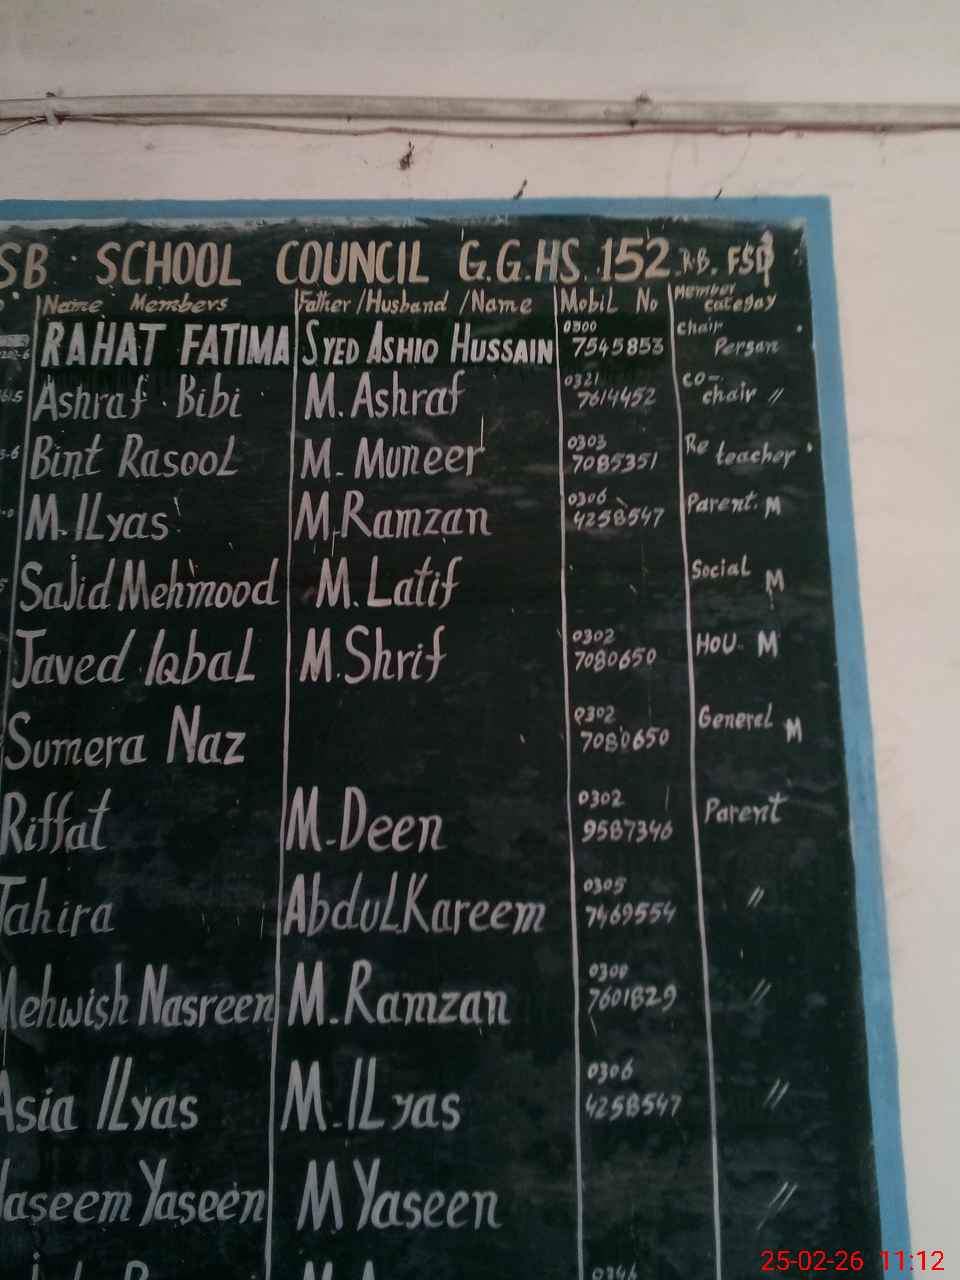 SB SCHOOL COUNCIL G.G.HS 152 R.B. FSD
Name Members Father/Husband/Name Mobil No Member categay
RAHAT FATIMA SYED ASHIO HUSSAIN 0300 7545853 chair Persan
Ashraf Bibi M. Ashraf 0321 7614452 co-chair //
Bint Rasool M. Muneer 0303 7085351 Re teacher
M. ILyas M. Ramzan 0306 4258547 Parent. M
Sajid Mehmood M. Latif Social M
Javed Iqbal M. Shrif 0302 7080650 HOU. M
Sumera Naz 0302 7080650 General M
Riffat M. Deen 0302 9587346 Parent
Tahira Abdul Kareem 0305 7469554 //
Mehwish Nasreen M. Ramzan 0300 7601829 //
Asia ILyas M. ILyas 0306 4258547 //
aseem Yaseen M Yaseen //
0346
25-02-26 11:12